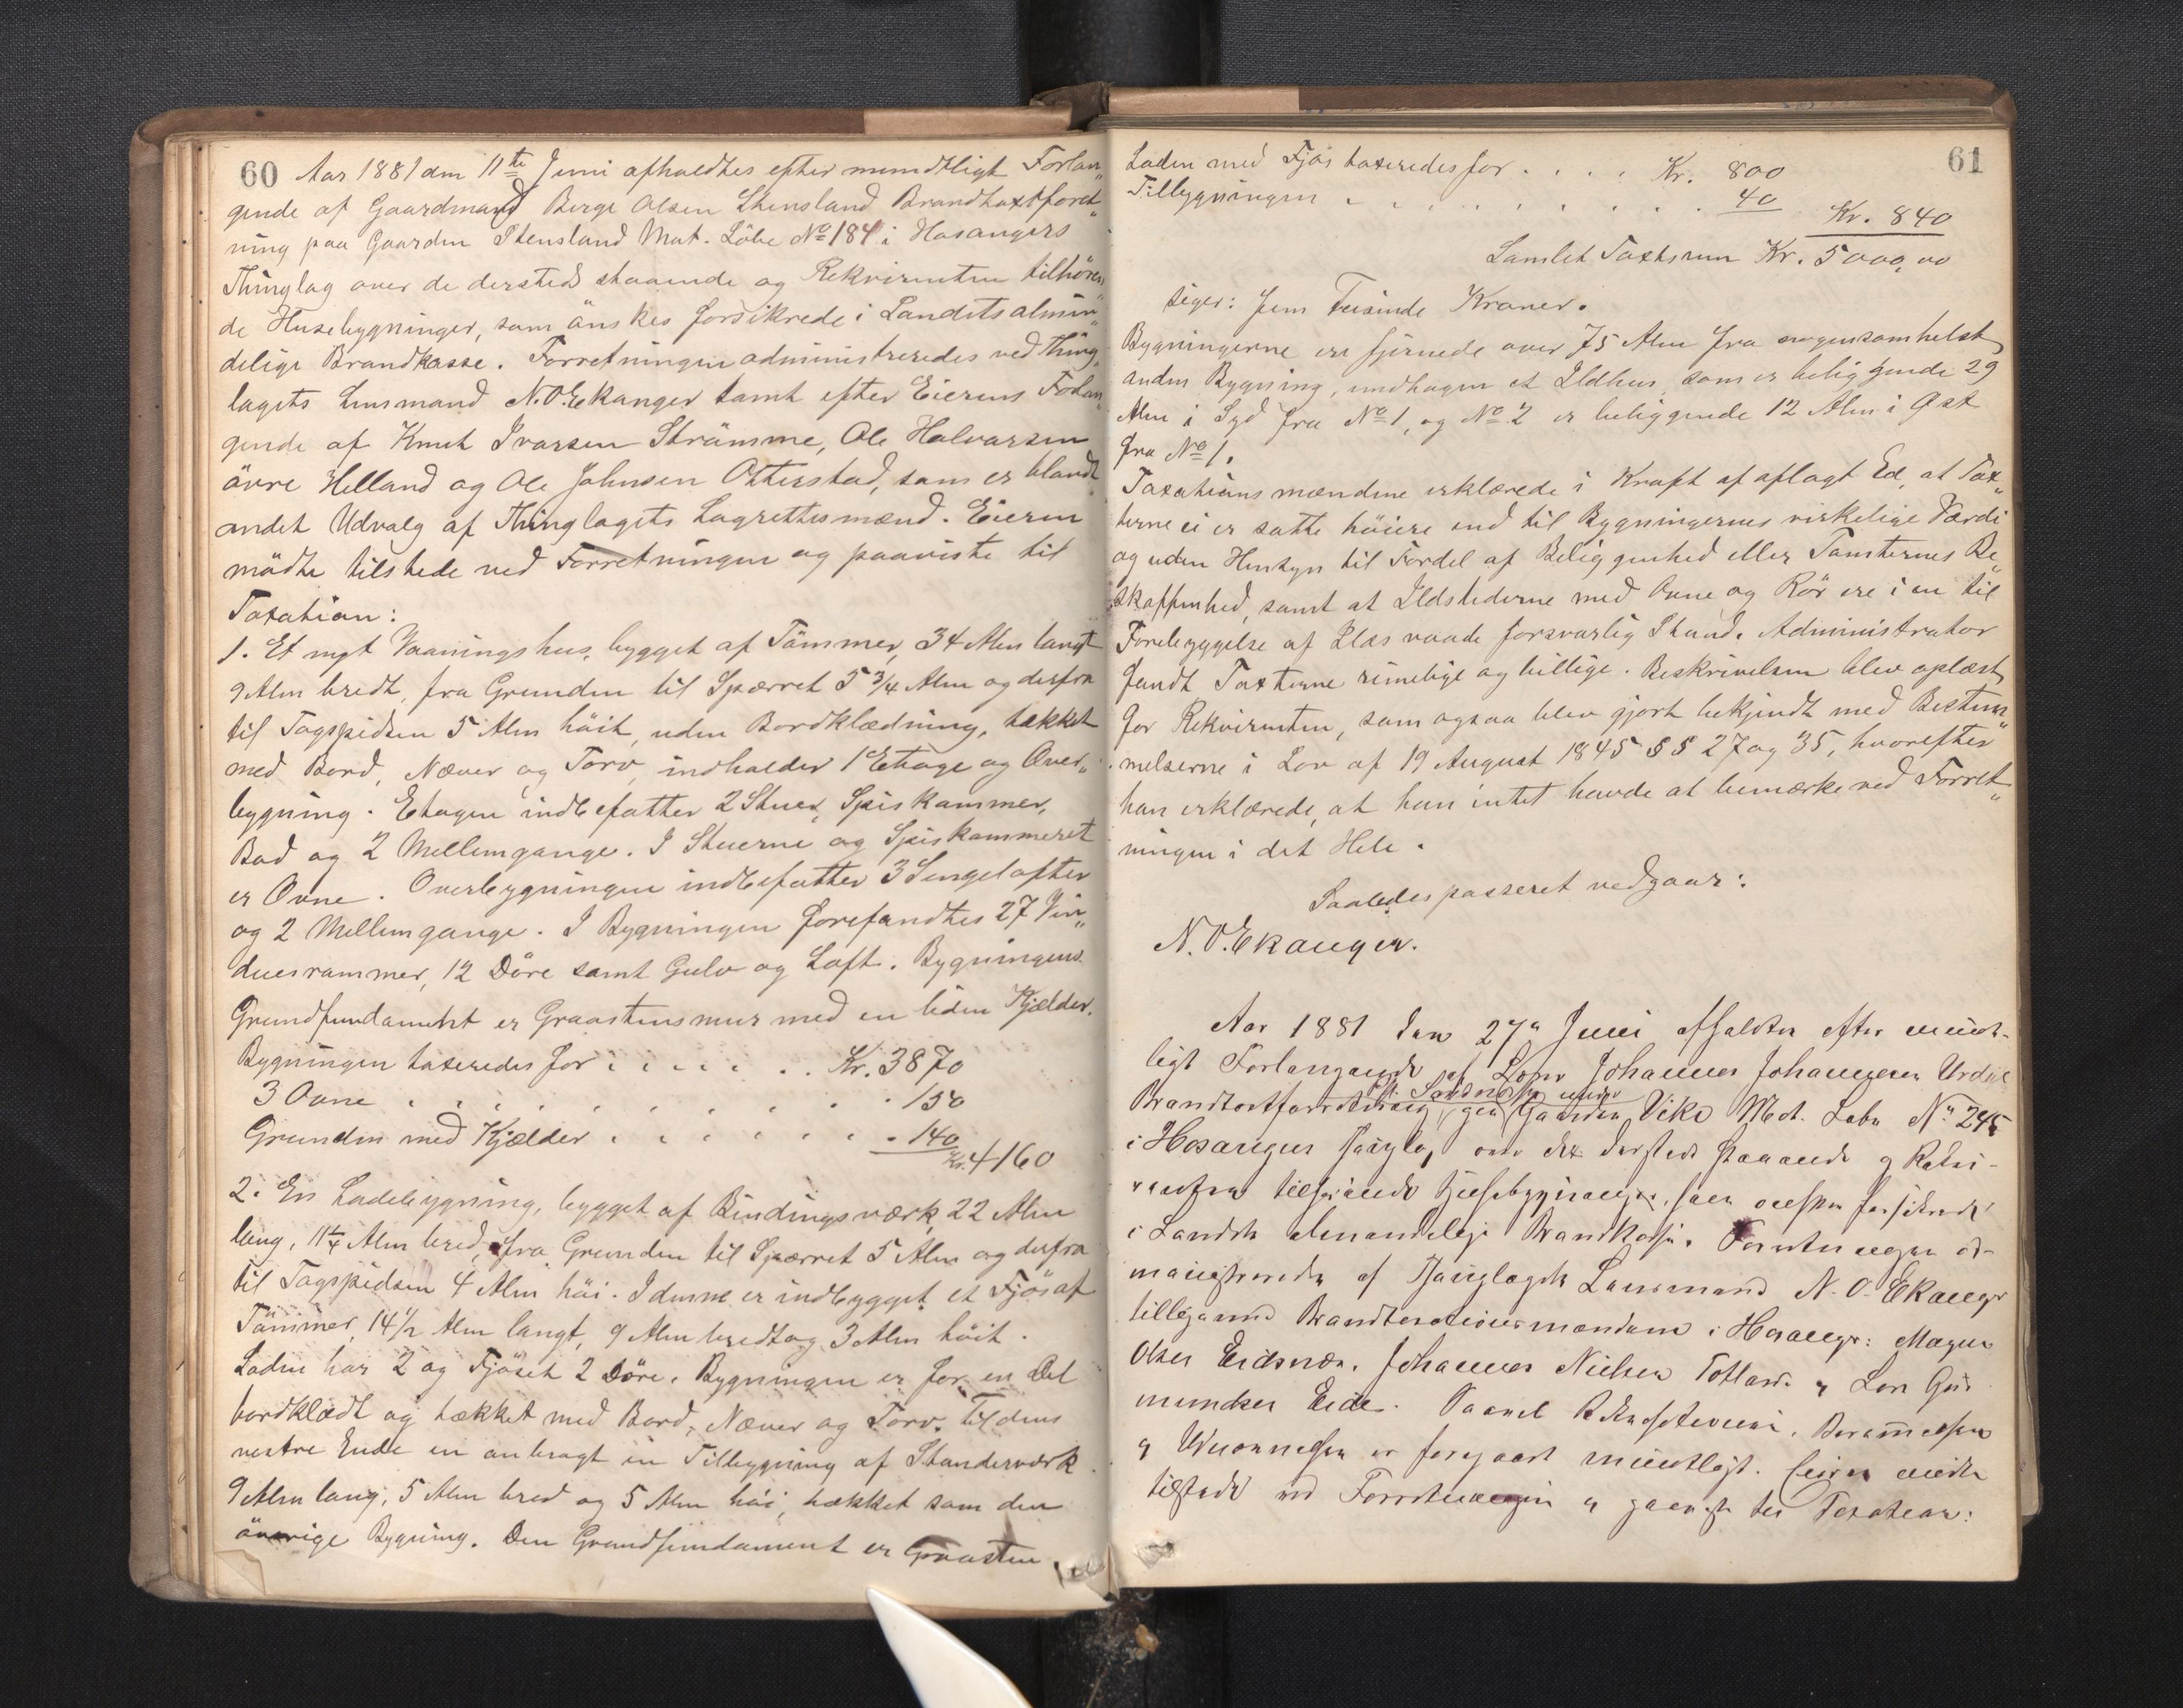 60 Aar 1881 den 11te Juni afholdtes efter mundtligt Forlan„
gende af Gaardmand Berge Olsen Stensland Brandtaxtforret„
ning paa Gaarden Stensland Mat. Löbe No 184 i Hosangers
Thinglag over de dersteds staaende og Rekvirenten tilhören„
de Husebygninger, som önskes forsikrede i Landets almin„
delige Brandkasse. Forretningen administreredes ved Thing„
lagets Lensmand N. O. Ekanger samt efter Eierens Forlan„
gende af Knut Ivarsen Strömme, Ole Halvorsen
övre Helland og Ole Johnsen Otterstad, som er blandt
andet Udvalg af Thinglagets Lagrettesmænd. Eieren
mödte tilstede ved Forretningen og paaviste til
Taxation:
1. Et nyt Vaaningshus, bygget af Tömmer, 34 Alen langt
9 Alen bredt, fra Grunden til Sparret 5 3/4 Alen og derfra
til Tagspidsen 5 Alen höit, uden Bordklædning, tækket
med Bord, Næver og Torv, indholder 1 Etage og Over„
bygning. Etagen indbefatter 2 Stuer, Spiskammer,
Bod og 2 Mellemgange. I Stuerne og Spiskammeret
er Ovne. Overbygningen indbefatter 3 Sengelofter
og 2 Mellemgange. I Bygningen forefandtes 27 Vin„
duesrammer, 12 Döre samt Gulv og Loft. Bygningens
Grundfundament er Graastensmur med en liden Kjælder.
Bygningen taxeredes for . . . . . . Kr. 3870
3 Ovne . . . . . . . . . . 150
Grunden med Kjælder . . . . . . . 140 Kr. 4160
2. En Ladebygning, bygget af Bindingsværk, 22 Alen
lang, 11 1/4 Alen bred, fra Grunden til Sparret 5 Alen og derfra
til Tagspidsen 4 Alen höi. I denne er indbygget et Fjös af
Tömmer, 14 1/2 Alen langt, 9 Alen bredt og 3 Alen höit.
Laden har 2 og Fjöset 2 Döre. Bygningen er for en Del
bordklædt og tækket med Bord, Næver og Torv. Til dens
vestre Ende en anbragt en Tilbygning af Standerværk
9 Alen lang, 5 Alen bred og 5 Alen höi, tækket som den
övrige Bygning. Den Grundfundament er Graasten.
61
Laden med Fjös taxeredes for . . . . Kr. 800
Tilbygningen . . . . . . . . . 40 Kr. 840
Samlet Taxtsum Kr. 5000,00
siger: Fem Tusinde Kroner.
Bygningerne ere fjernede over 75 Alen fra nogensomhelst
anden Bygning, undtagen et Ildhus, som er beliggende 29
Alen i Syd fra No 1, og No 2 er beliggende 12 Alen i Øst
fra No 1.
Taxationsmændene erklærede i Kraft af aflagt Ed, at Tax„
terne ei er satte höiere end til Bygningernes virkelige Værdi
og uden Hensyn til Fordel af Beliggenhed eller Tomternes Be„
skaffenhed, samt at Ildstederne med Ovne og Rör ere i en til
Forebyggelse af Ildsvaade forsvarlig Stand. Administrator
fandt Taxterne rimelige og billige. Beskrivelsen blev oplæst
for Rekvirenten, som ogsaa blev gjort bekjendt med Bestem„
melserne i Lov af 19 August 1845 §§ 27 og 35, hvorefter
han erklærede, at han intet havde at bemærke ved Forret„
ningen i det Hele.
Saaledes passeret vedgaar:
N. O. Ekanger.
Aar 1881 den 27de Juni afholdtes efter mundt-
ligt Forlangende af Johannes Johannesen Urdal
Brandtaxtforretning paa Gaarden Vike Mat. Løbe No 245
i Hosanger Thinglag over de dersteds staaende og Rekvi-
renten tilhørende Husebygninger, som ønskes forsikrede
i Landets almindelige Brandkasse. Forretningen ad-
ministreredes af Thinglagets Lensmand N. O. Ekanger
tilligemed Brandtaxationsmændene i Hosanger: Magne
Olsen Eidsnes, Johannes Nielsen Totland og Lars Gud-
mundsen Eide. Berammelsen
og er foregaaet mundtligt. Eieren mødte
tilstede ved Forretningen og paaviste til Taxation: